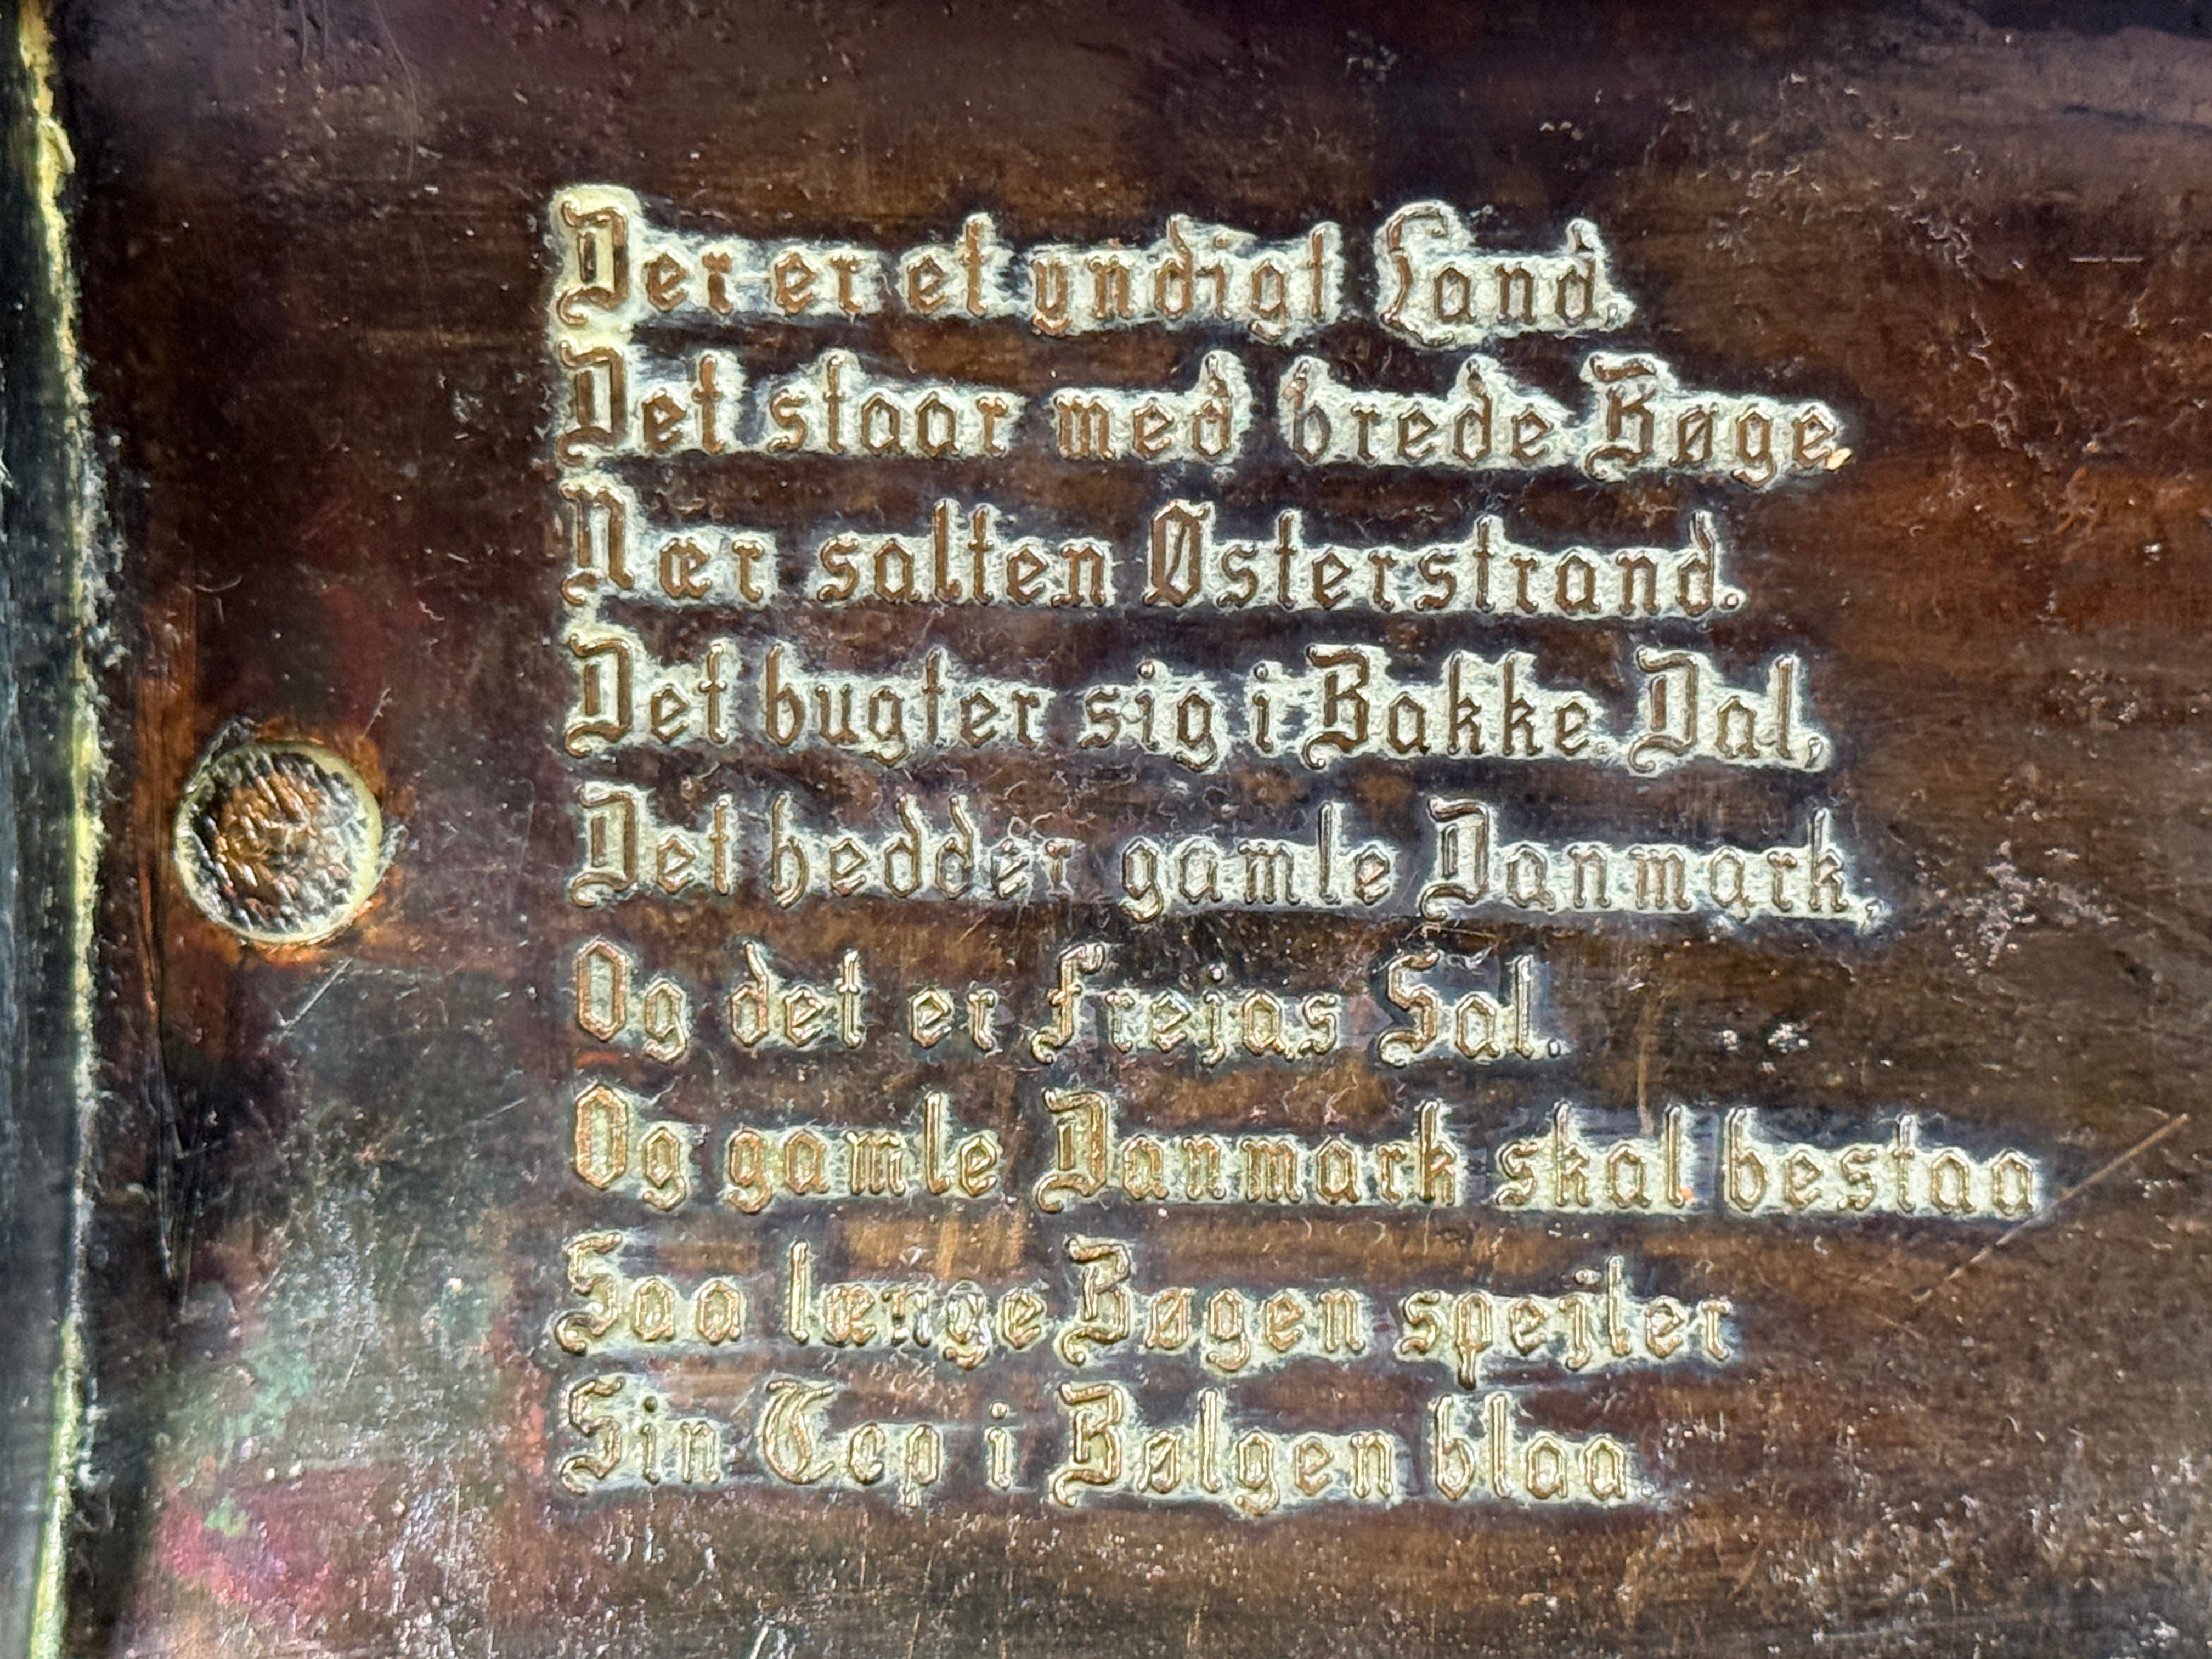 Der er et yndigt Land,
Det staar med brede Bøge,
Nær salten Østerstrand.
Det bugter sig i Bakke, Dal,
Det hedder gamle Danmark,
Og det er Frejas Sal.
Og gamle Danmark skal bestaa
Saa længe Bøgen spejler
Sin Top i Bølgen blaa.